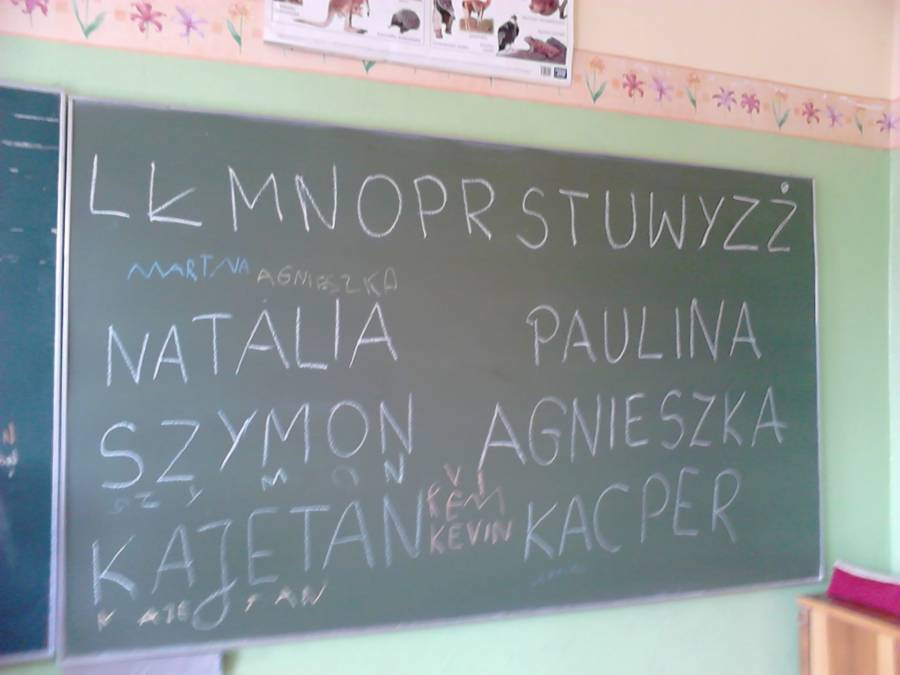 L Ł M N O P R S T U W Y Z Ż
MARTNA AGNIESZKA
NATALIA PAULINA
SZYMON AGNIESZKA
SZYMON
VI
KEM
KAJETAN KEVIN KACPER
KAJETAN